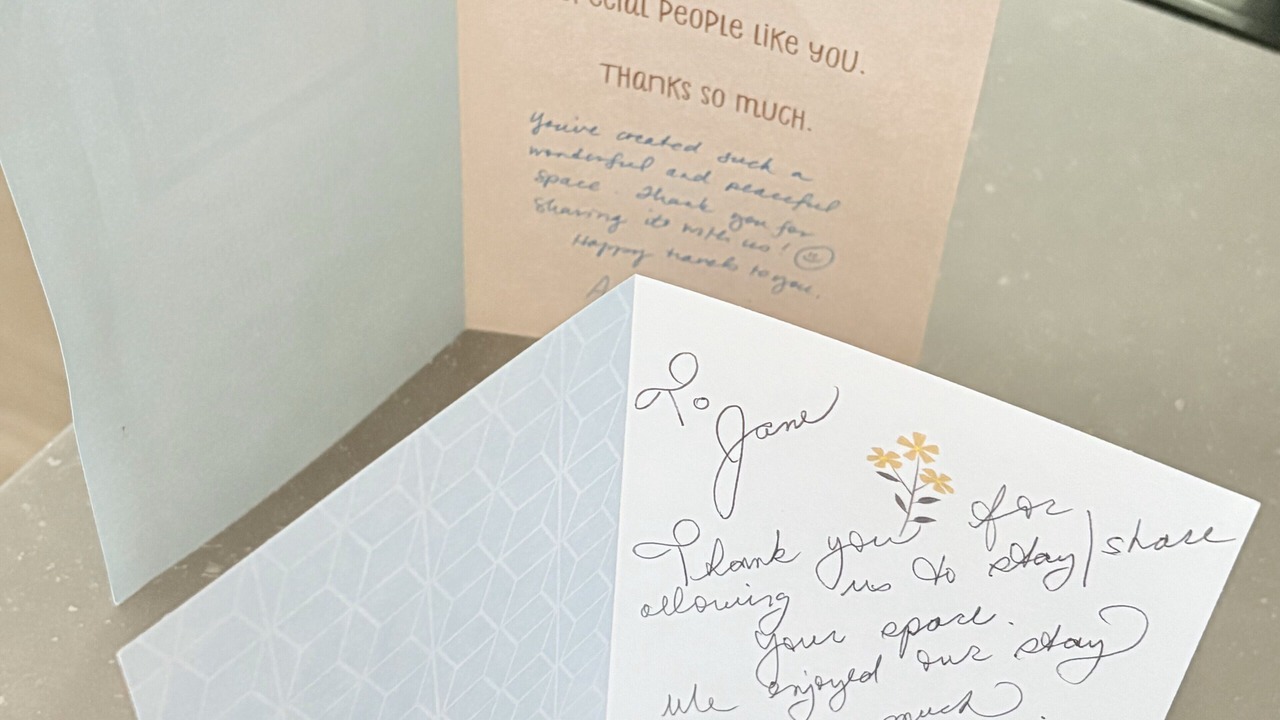 special PEOPLE LIKE YOU.
THANKS SO MUCH.
You've created such a
wonderful and peaceful
space. Thank you for
sharing it with us!
Happy travels to you.
A
To
Jane
Thank you for
allowing us to stay/share
your space.
We enjoyed our stay
much